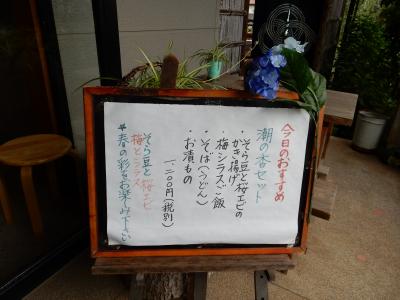 今日のおすすめ
潮の香セット
・そら豆と桜エビの
かき揚げ
・梅シラスご飯
・そば(うどん)
・お漬もの
一、二〇〇円(税別)
そら豆と桜エビ
梅とシラス
春の彩をお楽しみ下さい